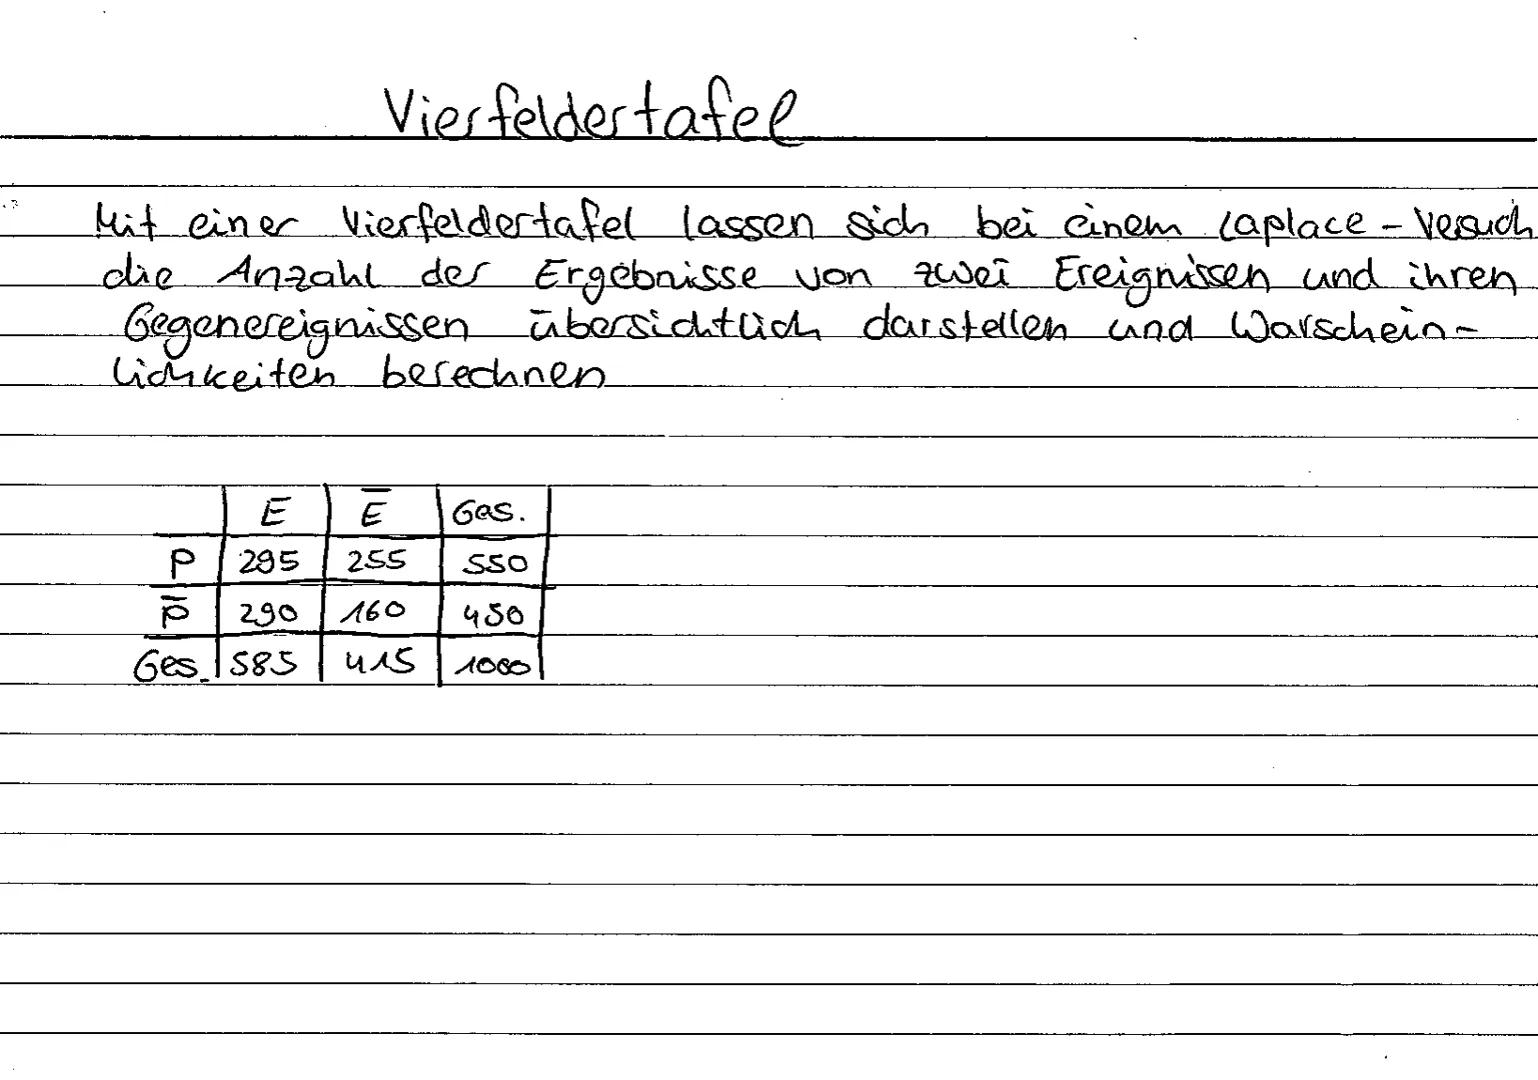 Vierfeldertafel
Mit einer Vierfeldertafel lassen sich bei einem Laplace-Versuch
die Anzahl der Ergebnisse von zwei Ereignissen und ihren
Gegenereignissen übersichtlich darstellen und Warschein-
lichkeiten berechnen
E E̅ Ges.
P 295 255 550
P̅ 290 160 450
Ges. 585 415 1000